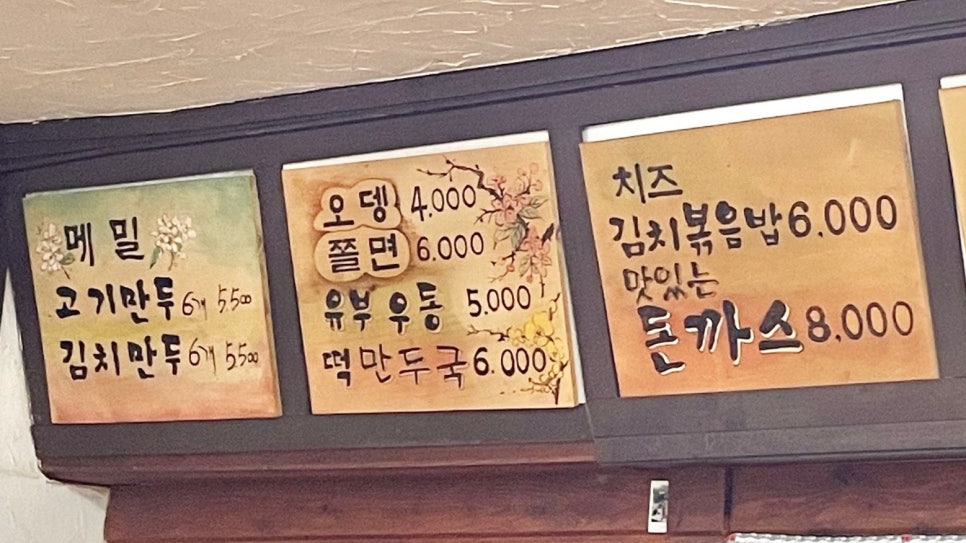 메밀
고기만두 6개 5500
김치만두 6개 5500
오뎅 4.000
쫄면 6.000
유부우동 5.000
떡만두국 6.000
치즈
김치볶음밥 6.000
맛있는
돈까스 8.000